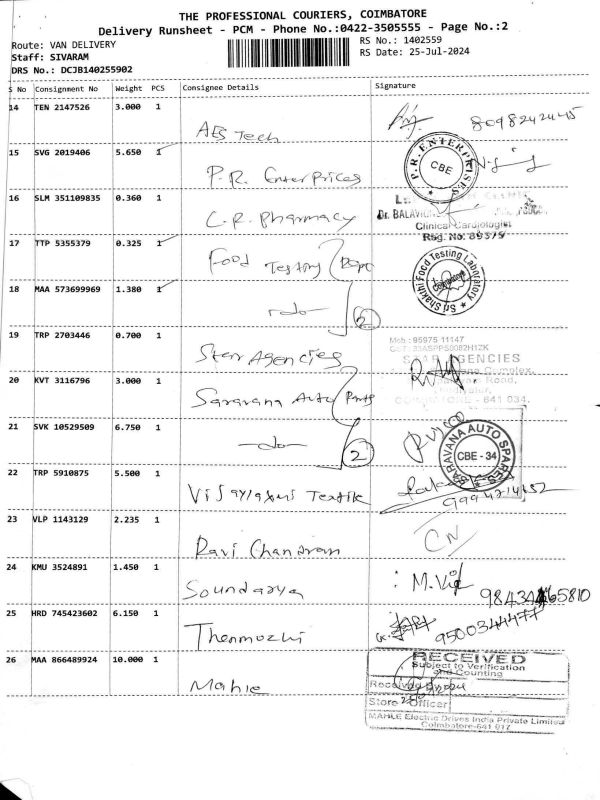 THE PROFESSIONAL COURIERS, COIMBATORE
Delivery Runsheet - PCM - Phone No.:0422-3505555 - Page No.:2
Route: VAN DELIVERY
Staff: SIVARAM
DRS No.: DCJB140255902
RS No.: 1402559
RS Date: 25-Jul-2024
S No Consignment No Weight PCS Consignee Details Signature
14 TEN 2147526 3.000 1
AES Tech
80982424445
15 SVG 2019406 5.650 1
P.R. Enterprices
P.R. ENTERPRISES
CBE
16 SLM 351109835 0.360 1
C.R. Pharmacy
Clinical Cardiologist
Reg. No: 89379
17 TTP 5355379 0.325 1
Food Testing Dept
Sri Shakthi Food Testing Laboratory
18 MAA 573699969 1.380 1
-do-
2
19 TRP 2703446 0.700 1
Star Agencies
Mob : 95975 11147
STAR AGENCIES
COIMBATORE - 641 034.
20 KVT 3116796 3.000 1
Saravana Auto Parts
21 SVK 10529509 6.750 1
-do-
2
SARAVANA AUTO SPARES
CBE - 34
22 TRP 5910875 5.500 1
Vijaylaxmi Textile
23 VLP 1143129 2.235 1
Ravi Chandran
CN
24 KMU 3524891 1.450 1
Soundarya
25 HRD 745423602 6.150 1
Thenmozhi
9500344477
26 MAA 866489924 10.000 1
Mahle
RECEIVED
Subject to Verification
and Counting
Store Officer
MAHLE Electric Drives India Private Limited
Coimbatore-641 017